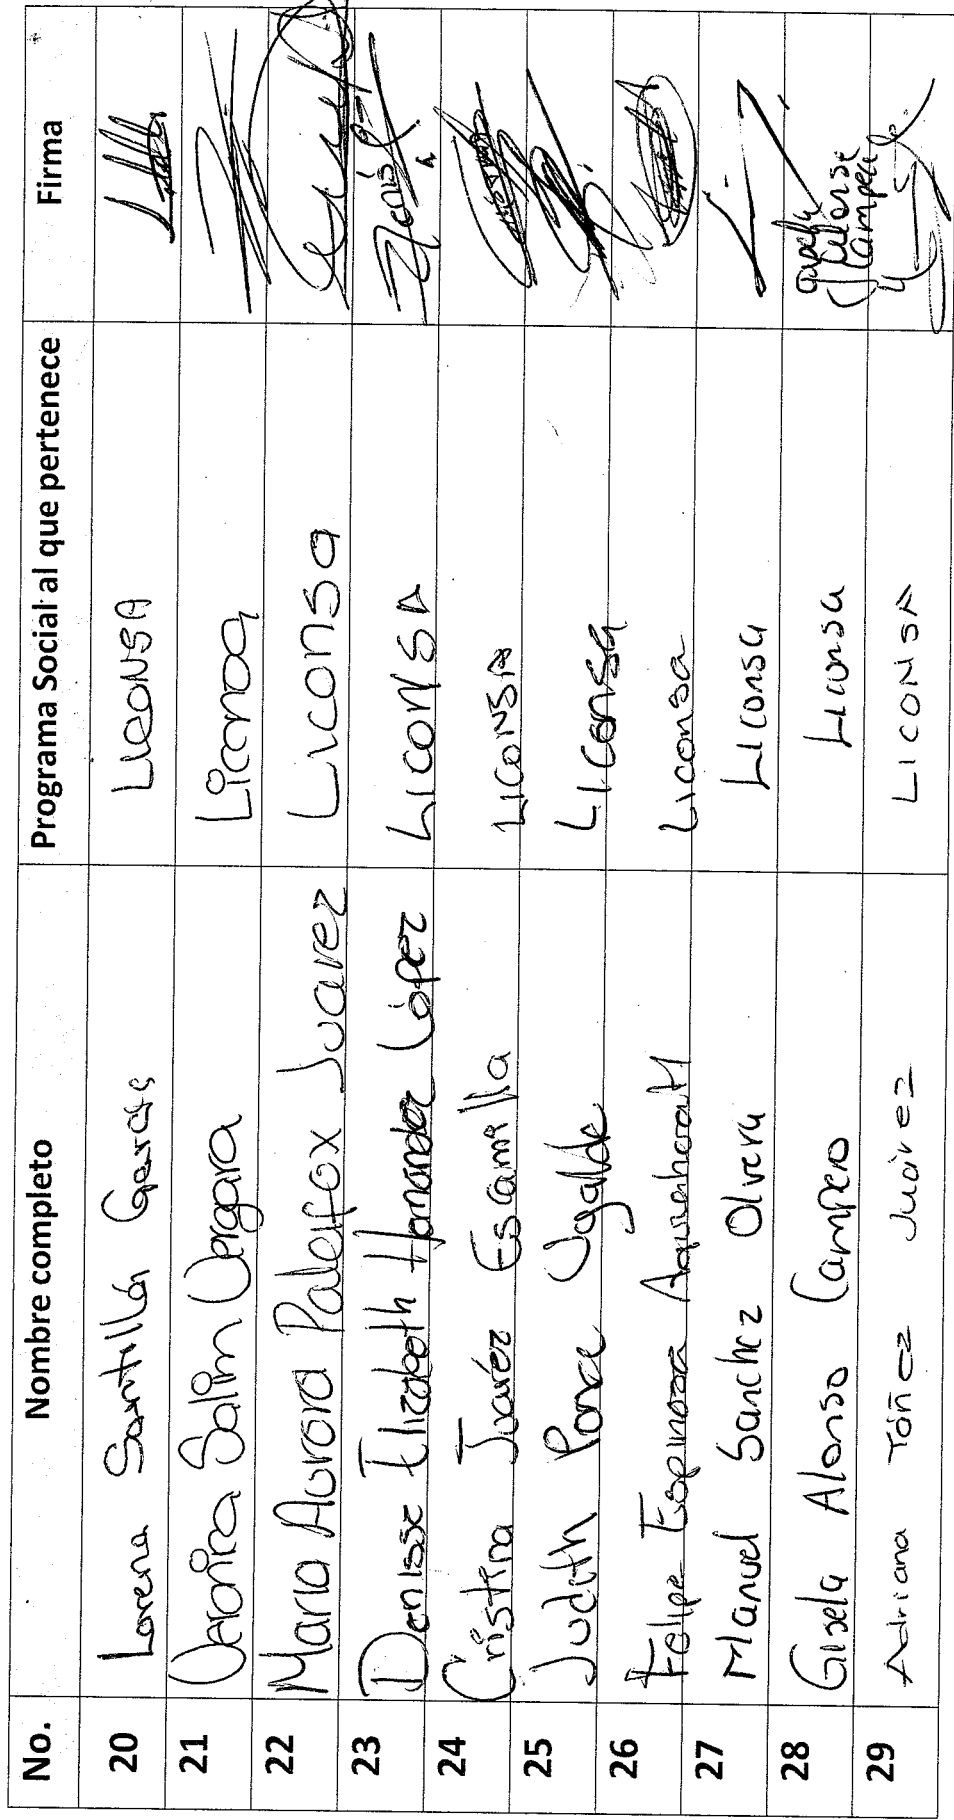 No. Nombre completo Programa Social al que pertenece Firma
20 Lorena Santillán Garces LICONSA
21 Veronica Salim Vergara Liconsa
22 Maria Aurora Palafox Juarez Liconsa
23 Denisse Elizabeth Hernandez López LICONSA Denis
24 Cristina Juárez Escamilla LICONSA
25 Judith Ponce Ugalde LIConsa
26 Felipe Espinosa Liconsa
27 Manuel Sanchez Olvera Liconsa
28 Gisela Alonso Campero Liconsa Gisela Alonso Campero
29 Adriana Tóñez Juárez LICONSA